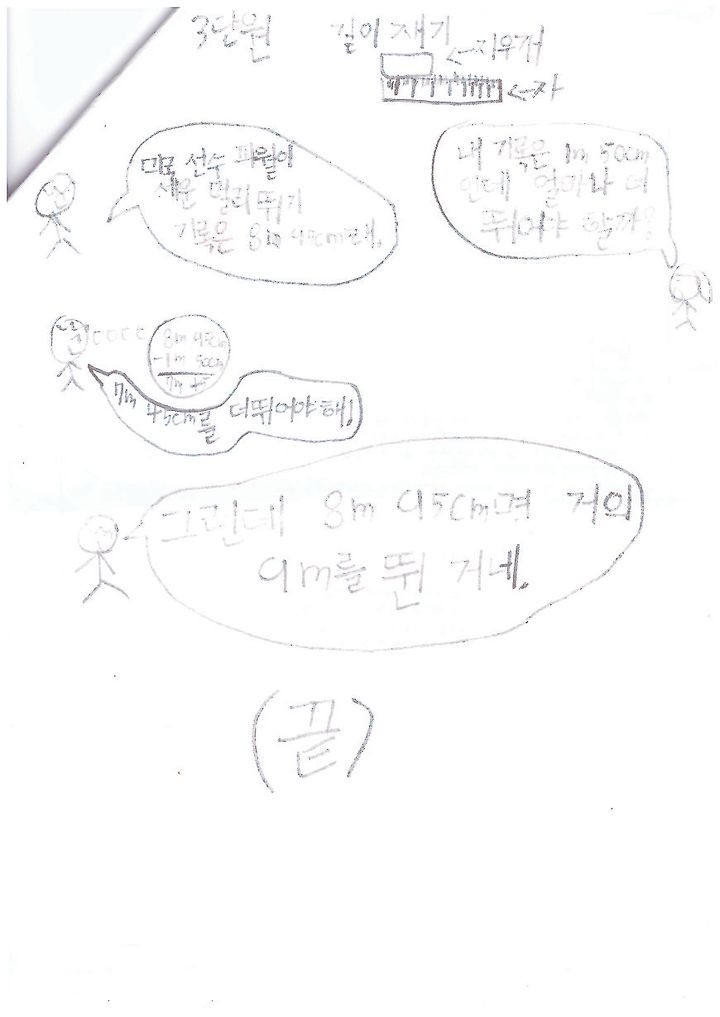 3단원 길이 재기
←지우개
←자
미국 선수 파월이
세운 멀리뛰기
기록은 8m 95cm래.
내 기록은 1m 50cm
인데 얼마나 더
뛰어야 할까?
8m 95cm
-1m 50cm
7m 45
7m 45cm를 더뛰어야해!
그런데 8m 95cm면 거의
9m를 뛴 거네.
(끝)